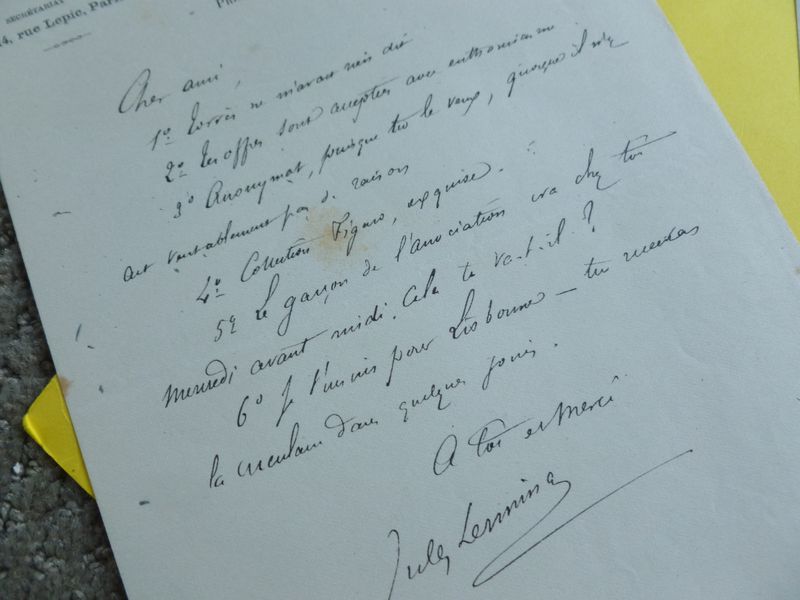 SECRÉTARIAT
14, rue Lepic, Paris
Cher ami,
1º Torrès ne m'avait rien dit
2º Tes offres sont acceptées avec enthousiasme
3º Anonymat, puisque tu le veux, quoique il n'y
ait véritablement pas de raisons
4º Collection Figaro, exquise.
5º Le garçon de l'association ira chez toi
mercredi avant midi. Cela te va-t-il ?
6º Je t'inscris pour Lisbonne — tu recevras
la circulaire dans quelques jours.
À toi et merci
Jules Lermina